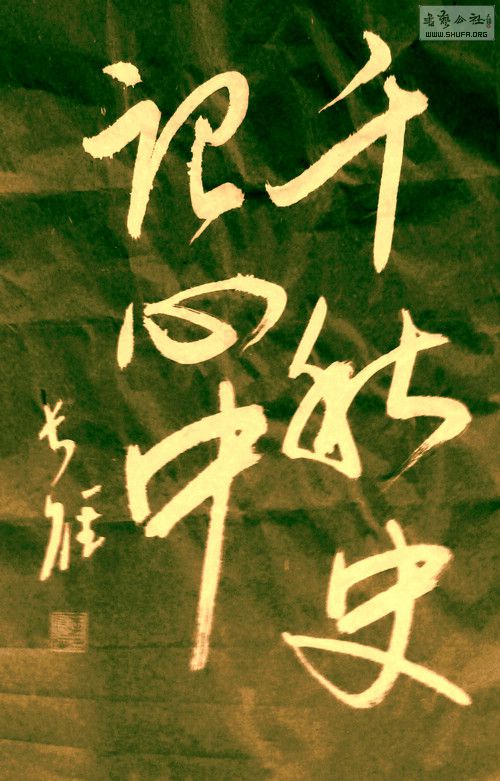 书艺公社
WWW.SHUFA.ORG
千秋史
记心中